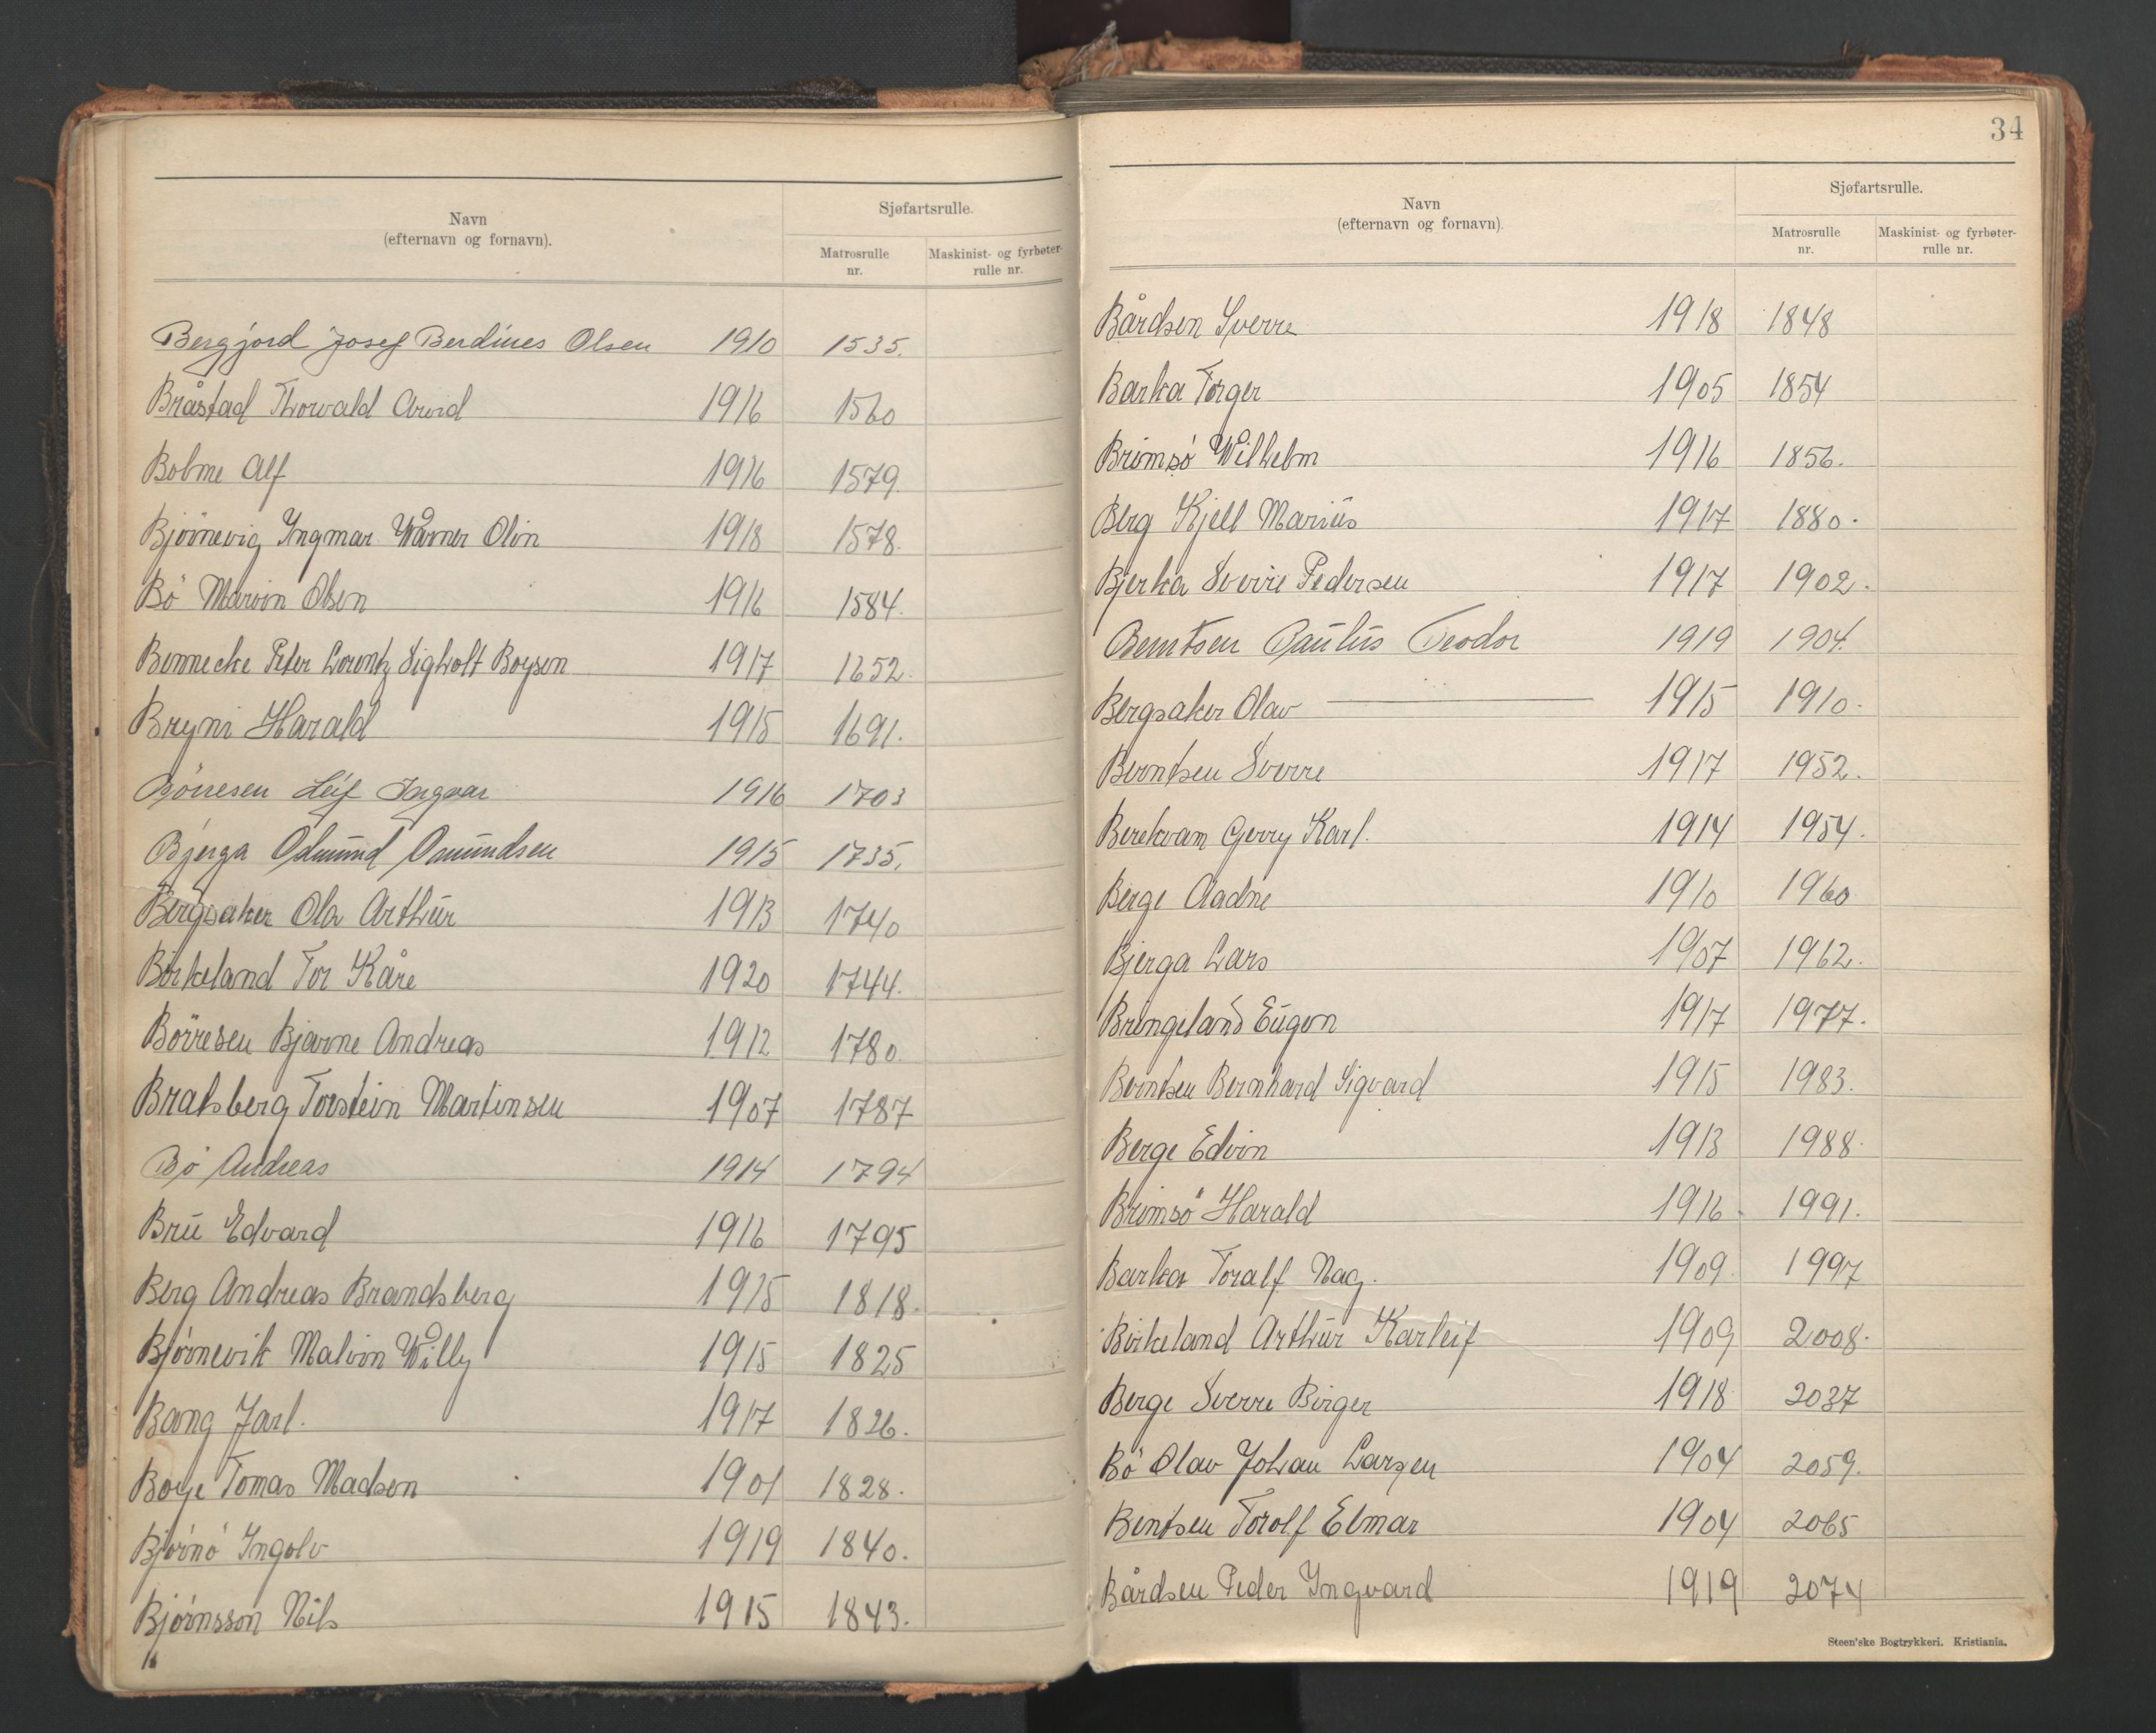 Navn
(efternavn og fornavn).
Sjøfartsrulle.
Matrosrulle nr.
Maskinist- og fyrbøter-rulle nr.
Bergjord Josef Berdines Olsen 1910 1535.
Bråstad Thorvald Arvid 1916 1560
Bolme Alf 1916 1579.
Bjørnevig Ingmar Warner Olin 1918 1578.
Bö Marvin Olsen 1916 1584.
Bennecke Peter Lorentz Sigholt Boysen 1917 1652.
Bryni Harald 1915 1691.
Börresen Leif Ingvar 1916 1703
Bjerga Odmund Osmundsen 1915 1735.
Bergsaker Ola Arthur 1913 1740
Birkeland Tor Kåre 1920 1744.
Börresen Bjarne Andreas 1912 1780.
Bratsberg Torstein Martinsen 1907 1787
Bö Andreas 1914 1794
Bru Edvard 1916 1795
Berg Andreas Brandsberg 1915 1818.
Bjørnevik Malvin Willy 1915 1825
Bang Jarl. 1917 1826.
Boye Tomas Madsen 1901 1828.
Bjørnö Ingolv 1919 1840.
Bjørnsson Nils 1915 1843.
34
Navn
(efternavn og fornavn).
Sjøfartsrulle.
Matrosrulle nr.
Maskinist- og fyrbøter-rulle nr.
Bårdsen Sverre 1918 1848
Barka Torger 1905 1854
Brimsö Wilhelm 1916 1856.
Berg Kjell Marius 1917 1880.
Bjerka Sverre Pedersen 1917 1902.
Berntsen Paulus Teodor 1919 1904.
Bergsaker Olav 1915 1910.
Berntsen Sverre 1917 1952.
Berekvam Gerry Karl. 1914 1954.
Berge Aadne 1910 1960
Bjerga Lars 1907 1962.
Bringeland Eugen 1917 1977.
Berntsen Bernhard Sigvard 1915 1983.
Berge Edvin 1913 1988.
Brimsö Harald 1916 1991.
Barka Toralf Nag. 1909 1997
Birkeland Arthur Karleif 1909 2008.
Berge Sverre Birger 1918 2037
Bö Olav Johan Larsen 1904 2059.
Bentsen Torolf Elmar 1904 2065
Bårdsen Peder Ingvard 1919 2074
Steen'ske Bogtrykkeri. Kristiania.